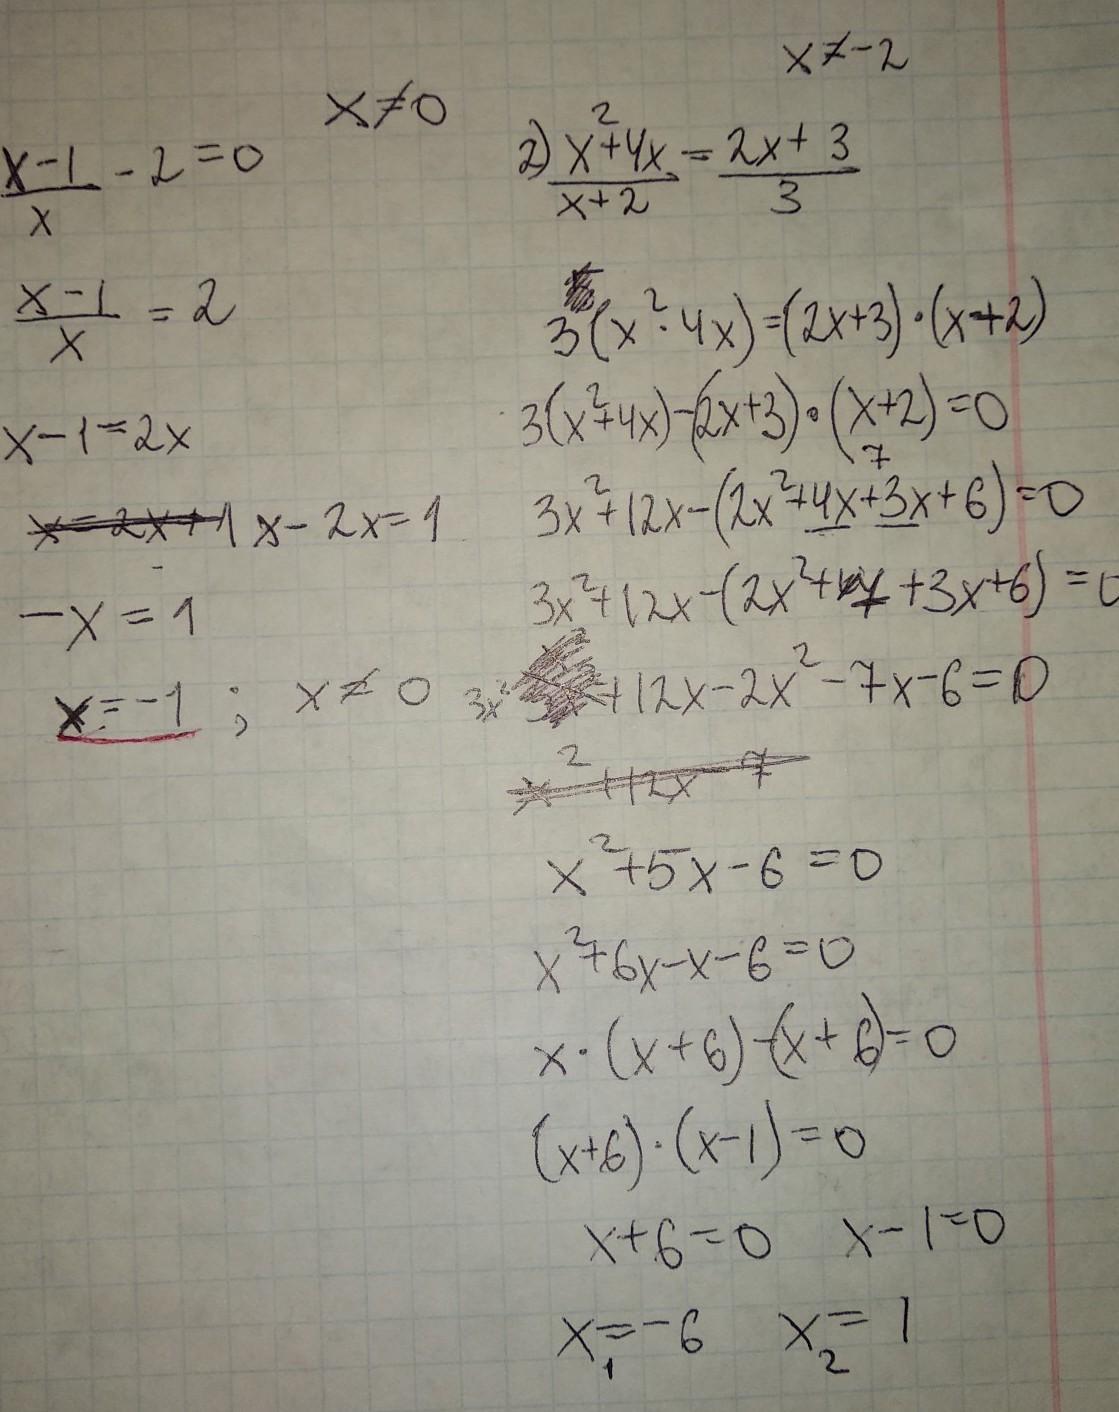 x≠0
x-1/x - 2=0
x-1/x = 2
x-1=2x
x=2x+1 x-2x=1
-x=1
x=-1 ; x≠0
x≠-2
2) x²+4x/x+2 = 2x+3/3
3(x²·4x)=(2x+3)·(x+2)
3(x²+4x)-(2x+3)·(x+2)=0
7
3x²+12x-(2x²+4x+3x+6)=0
3x²+12x-(2x²+ +3x+6)=0
3x²+12x-2x²-7x-6=0
x²+12x-7
x²+5x-6=0
x²+6x-x-6=0
x·(x+6)-(x+6)=0
(x+6)·(x-1)=0
x+6=0 x-1=0
x₁=-6 x₂=1